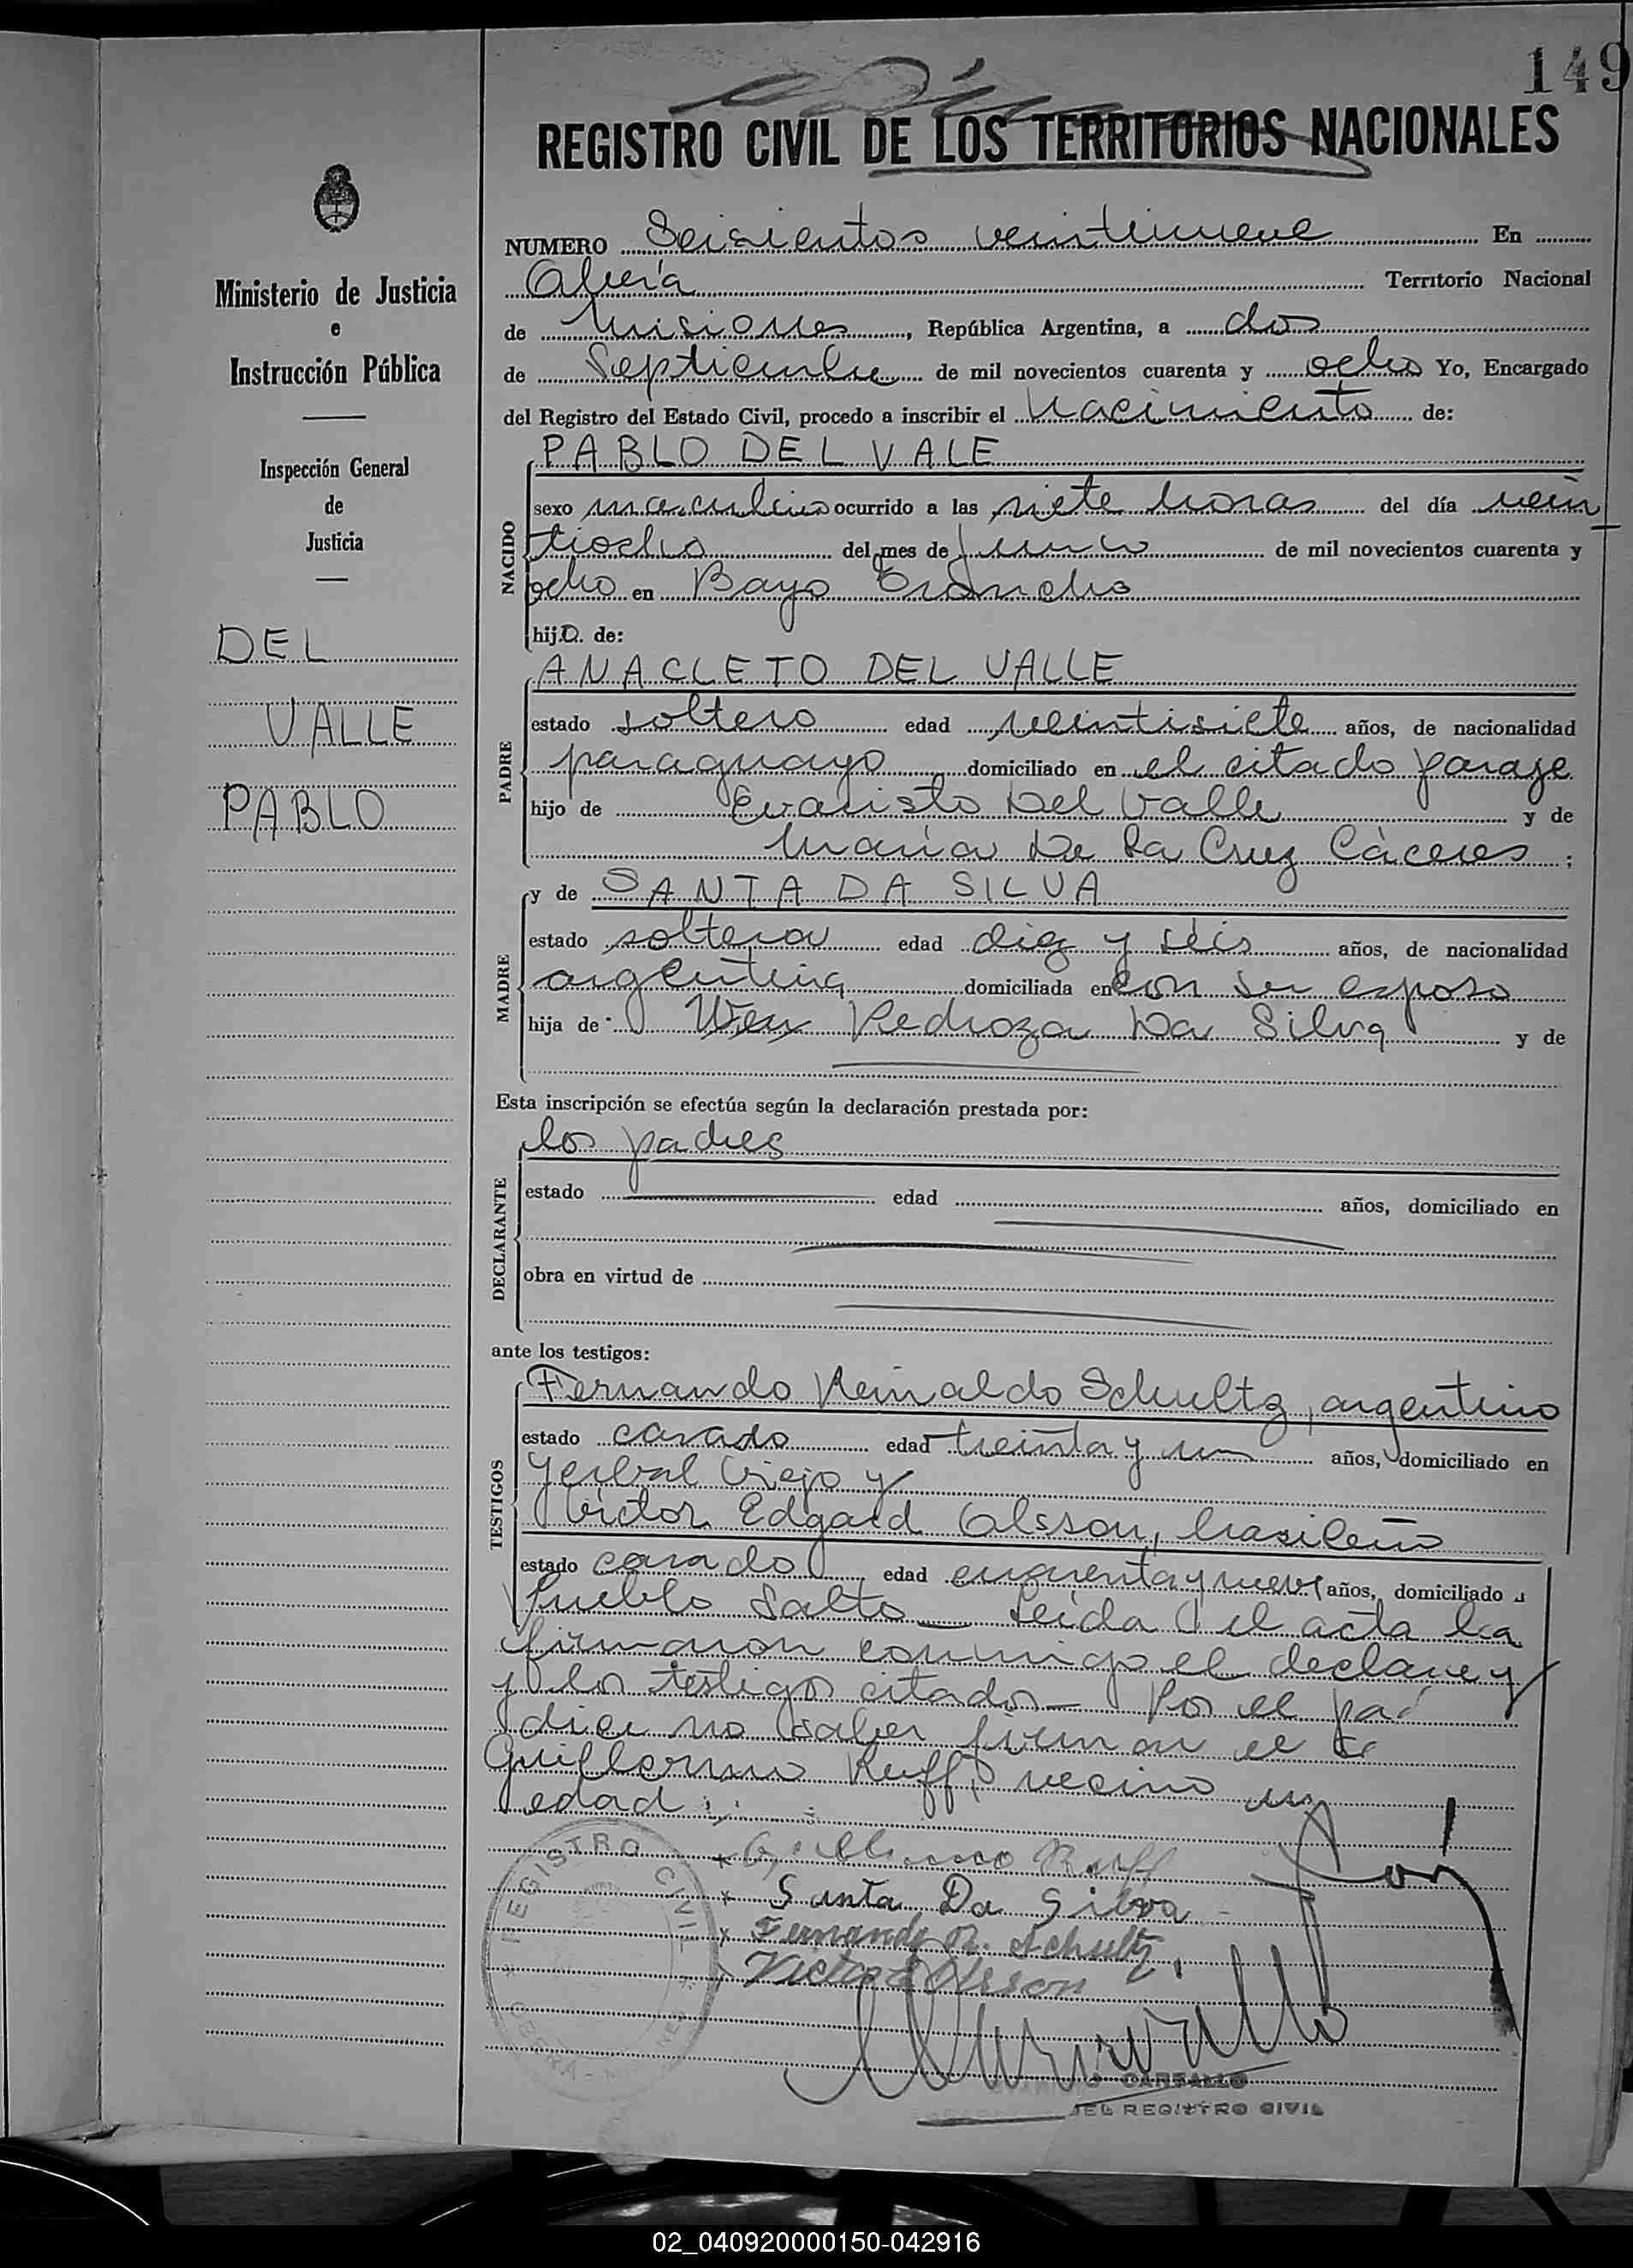 149
REGISTRO CIVIL DE LOS TERRITORIOS NACIONALES
NUMERO Seisientos veintinueve En
Oberá Territorio Nacional
de Misiones, República Argentina, a dos
de Septiembre de mil novecientos cuarenta y ocho Yo, Encargado
del Registro del Estado Civil, procedo a inscribir el nacimiento de:
PABLO DEL VALE
NACIDO
sexo masculino ocurrido a las siete horas del día vein
tiocho del mes de junio de mil novecientos cuarenta y
ocho en Bayo Troncho
hijo. de:
PADRE
ANACLETO DEL VALLE
estado soltero edad veintisiete años, de nacionalidad
paraguayo domiciliado en el citado paraje
hijo de Evaristo Del Valle y de
María De la Cruz Cáceres;
MADRE
y de SANTA DA SILVA
estado soltera edad diez y séis años, de nacionalidad
argentina domiciliada en con su esposo
hija de Pedroza Da Silva y de
Esta inscripción se efectúa según la declaración prestada por:
DECLARANTE
los padres
estado edad años, domiciliado en
obra en virtud de
ante los testigos:
TESTIGOS
Fernando Reinaldo Schultz, argentino
estado casado edad treinta y un años, domiciliado en
Yerbal Viejo y
Victor Edgard Olsson, brasileño
estado casado edad cuarenta y nueve años, domiciliado
Pueblo Salto — Leída el acta la
firmaron conmigo el declare y
y los testigos citados — Por el pa
dice no saber firmar el
Guillermo Ruff, vecino
edad
Guillermo Ruff
Santa Da Silva
Fernando R. Schultz
Victor E Olsson
REGISTRO CIVIL
CARBALLO
DEL REGISTRO CIVIL
Ministerio de Justicia
e
Instrucción Pública
Inspección General
de
Justicia
DEL
VALLE
PABLO
02_040920000150-042916